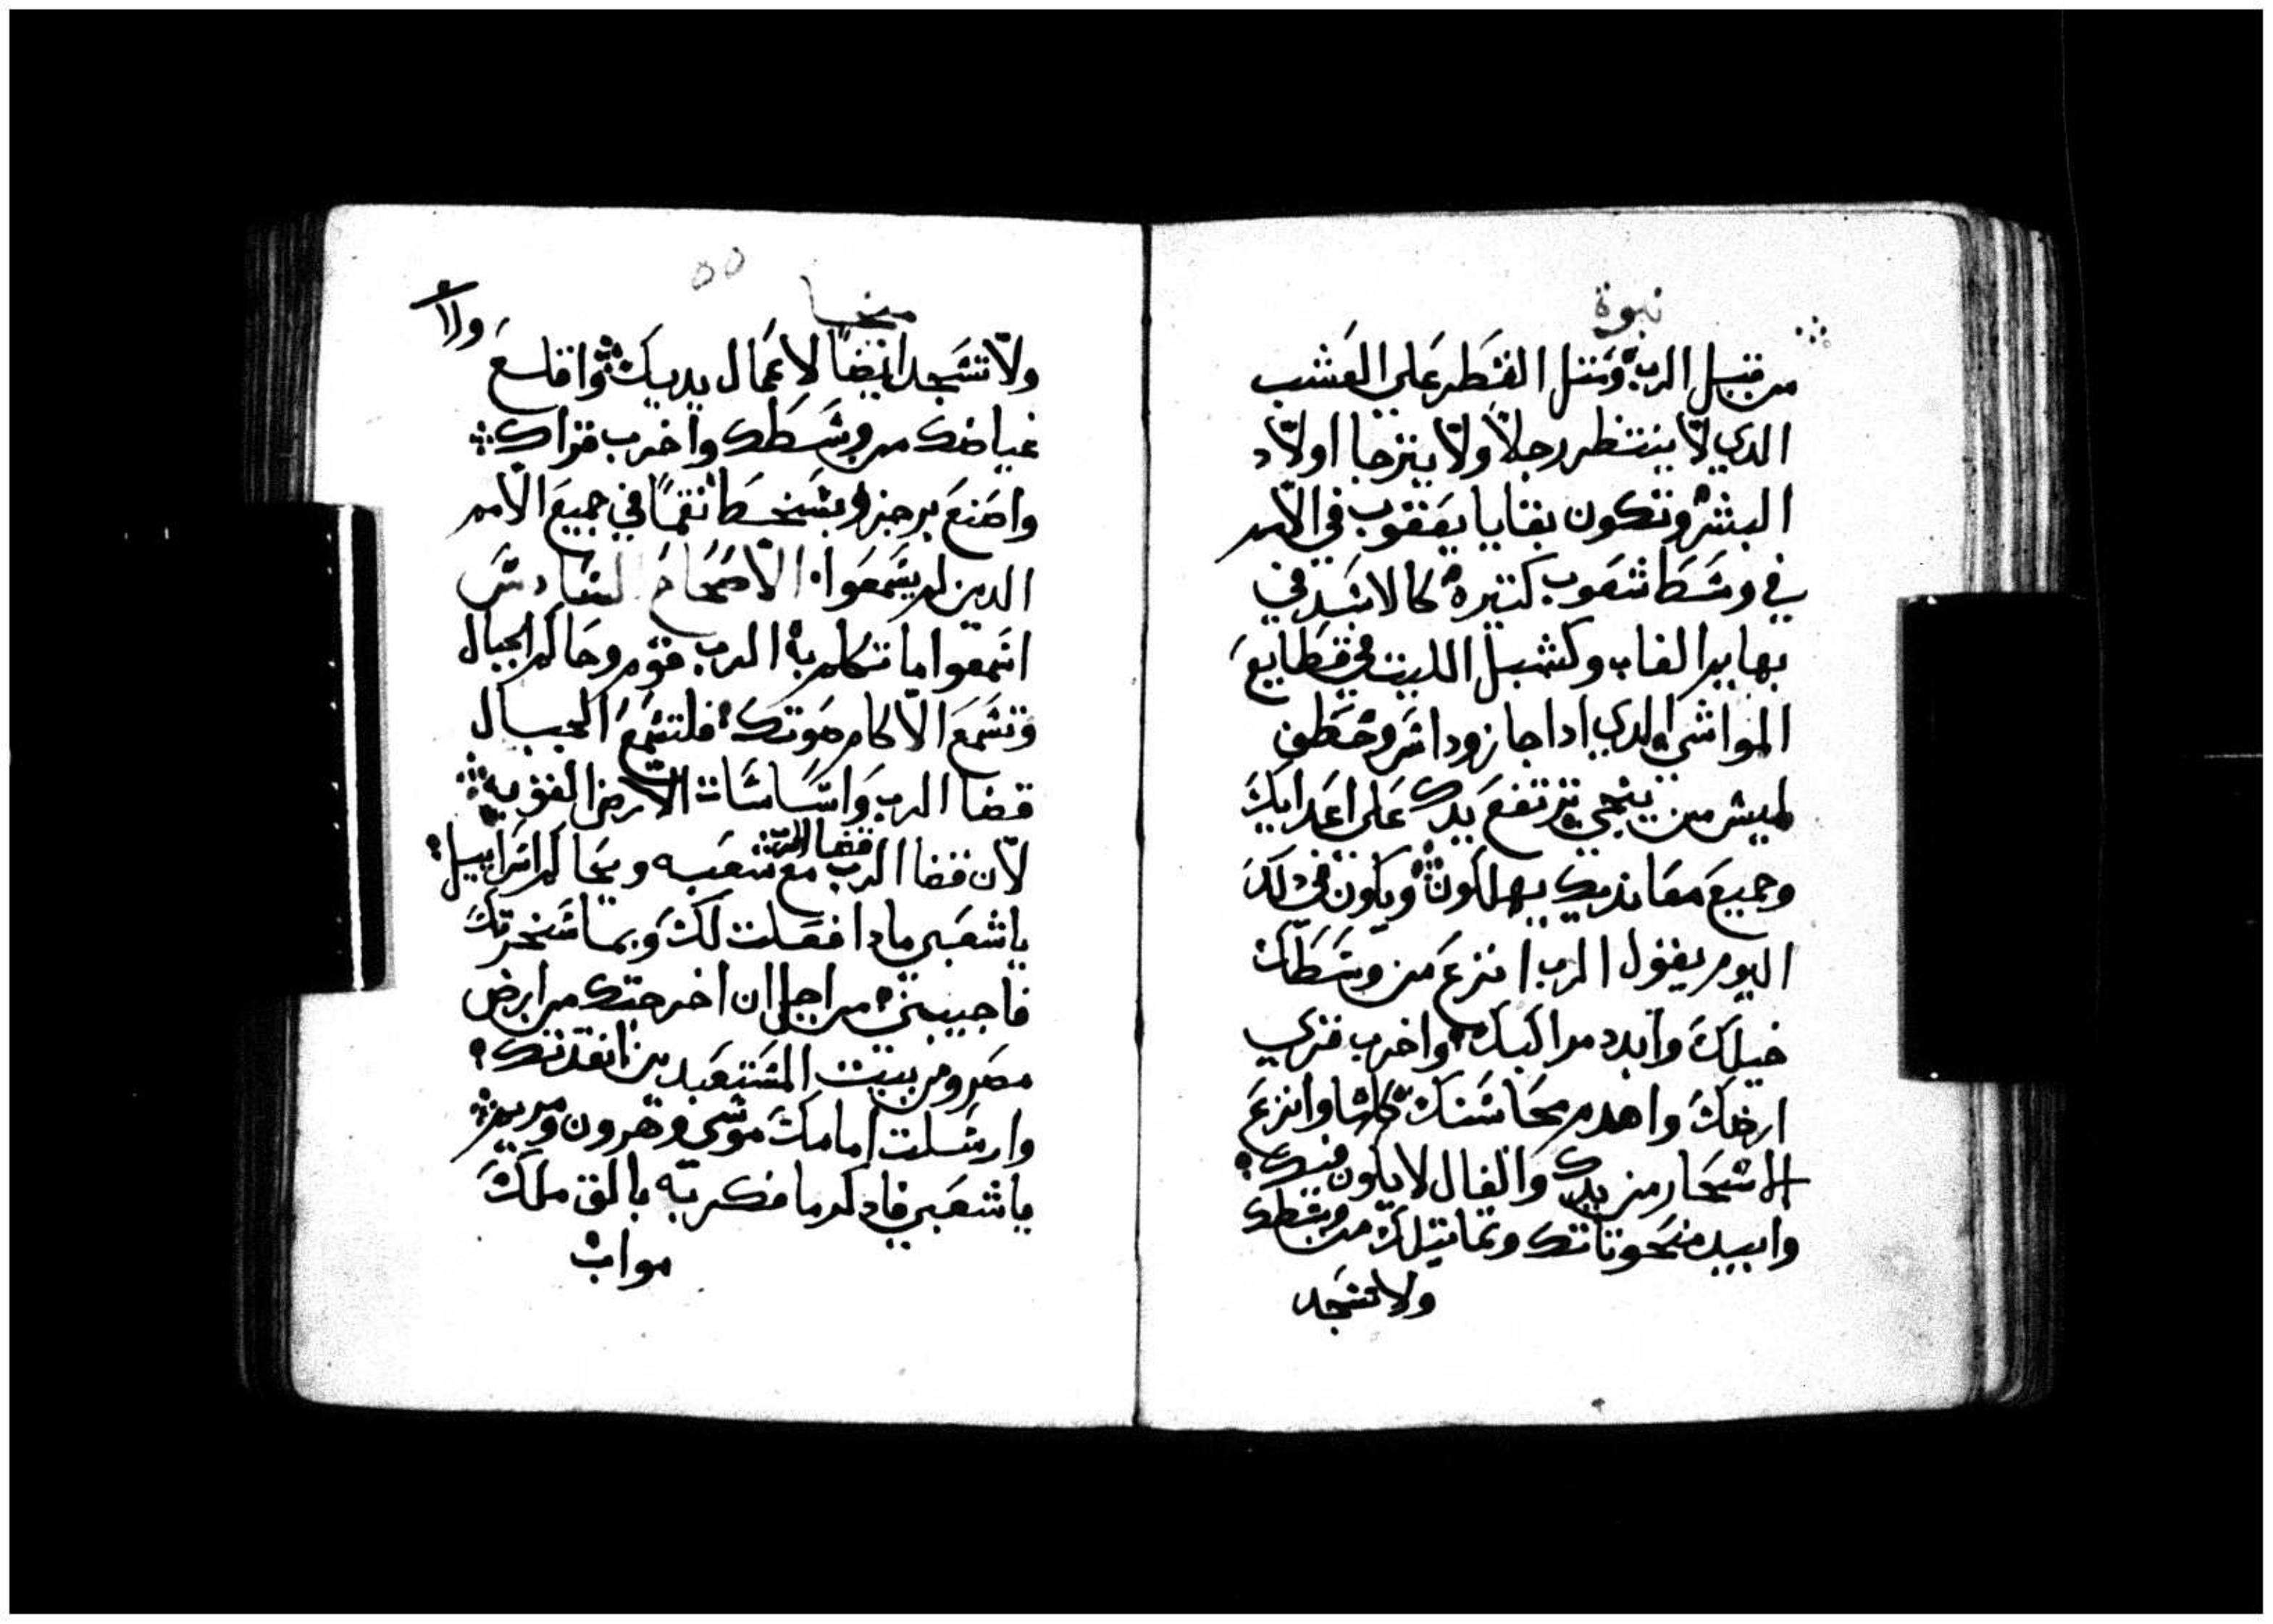 نبوة
من قبل الرب ومتل القطر على العشب
الدي لا ينتظر رجلاً ولا يترجا اولاد
البشر وتكون بقايا يعقوب في الامم
في وسط شعوب كتيره كالاسد في
بهايم الغاب وكشبل الليت في قطايع
المواشي الدي ادا جاز وداس وخطف
ليس من ينجي ترتفع يدك على اعدايك
وجميع معانديك يهلكون ويكون في دلك
اليوم يقول الرب انزع من وسطك
خيلك وابدد مراكبك واخرب قري
ارضك واهدم محاسنك كلها وانزع
الاسحار من يدك والفال لا يكون فيك
وابيد منحوتاتك وتماتيلك من وسطك
ولا تسجد
ميخا
55
ولا تسجد ايضاً لاعمال يديك واقلع
غياضك من وسطك واخرب قراك
واصنع برجز وبسخط نقماً في جميع الامم
الدين لم يسمعوا الاصحاح السادس
اسمعوا ما تكلم به الرب قوم وحاكم الجبال
وتسمع الاكام صوتك فلتسمع الجبال
قضا الرب واساسات الارض القويه
لان قضا الرب مع شعبه ويحاكم اسراييل
يا شعبي مادا فعلت لك وبما سخرتك
فاجيبني من اجل ان اخرجتك من ارض
مصر ومن بيت المستعبدين انقدتك
وارسلت امامك موسى وهرون ومريم
يا شعبي فادكر ما فكر به بالق ملك
مواب